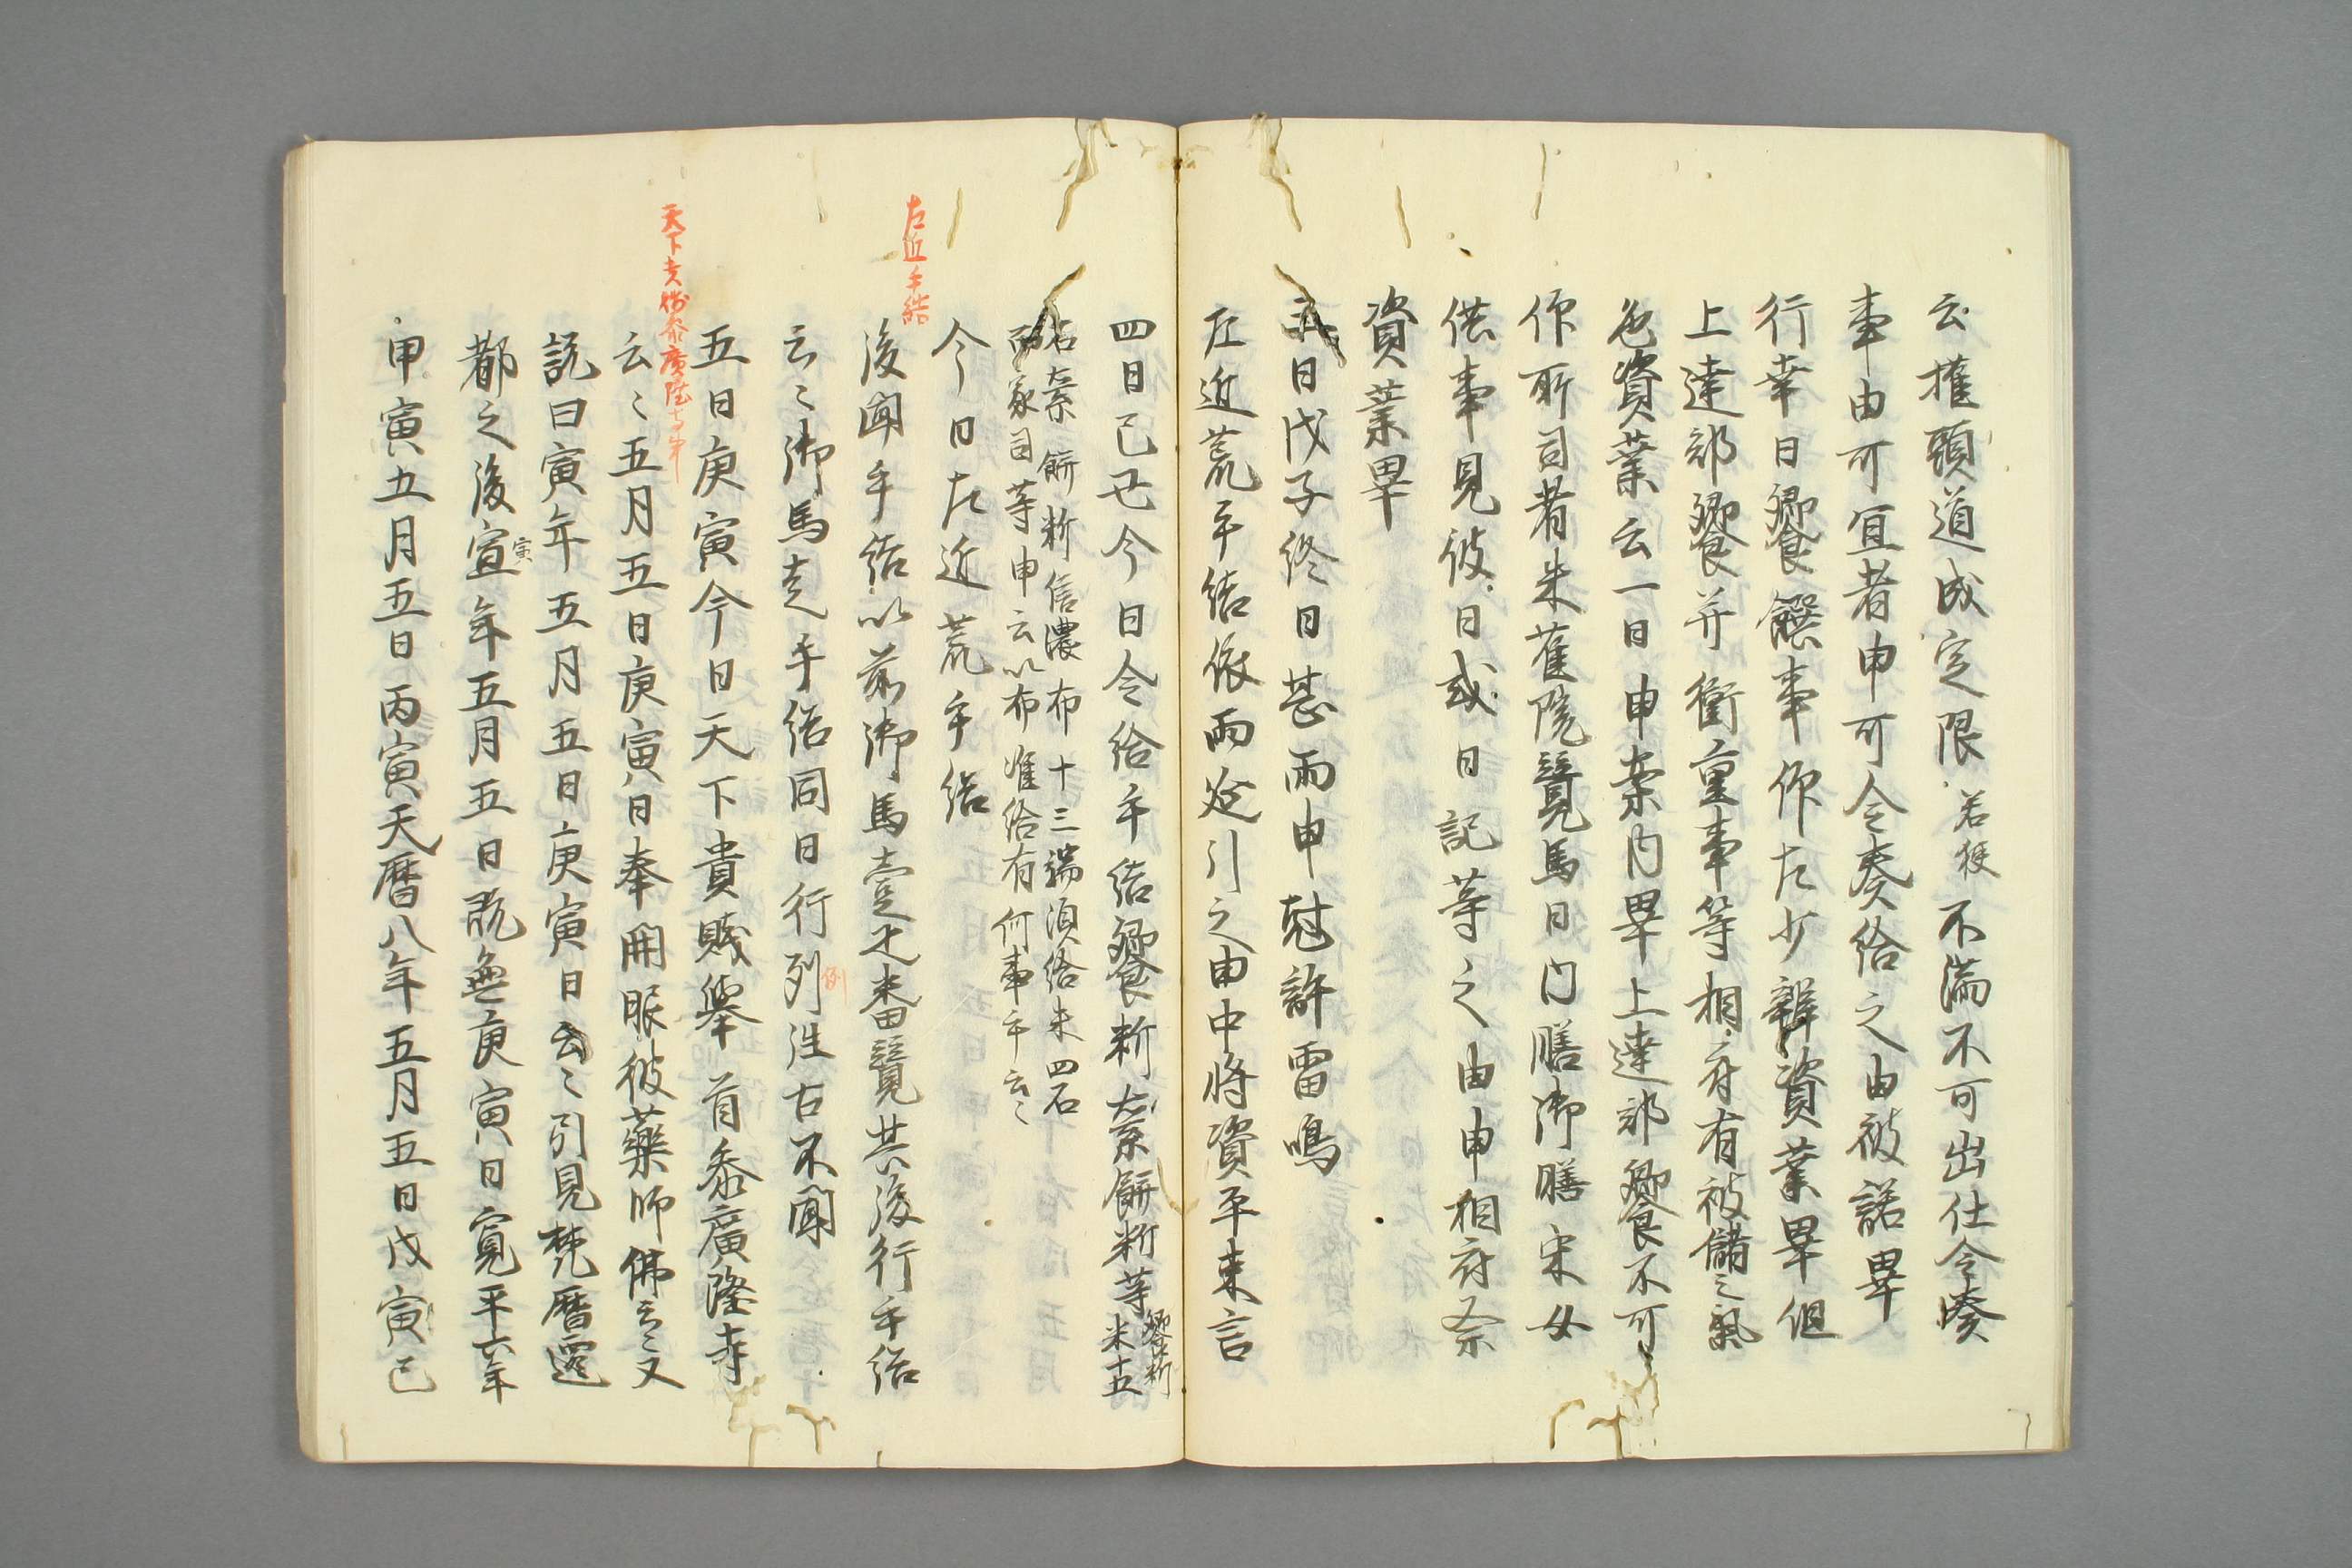 云権頭道成定限若狭不満不可出仕令奏
事由可宜者申可令奏給之由被諾畢
行幸日饗饌事仰左少辨資業畢但
上達部饗并衝重事等相府有被儲之氣
色資業云一日申案内畢上達部饗不可
仰所司者朱雀院競馬日内膳御膳采女
供事見彼日或日記等之由申相府奈
資業畢
三日戊子終日甚雨申尅許雷鳴
左近荒手結依雨延引之由中将資平来言
四日己丑今日令給手結饗料大褹餅料等饗料米十五
石大褹餅料信濃布十三端須給米四石
而家司等申云以布准給有何事乎云々
今日左近荒手結
後聞手結以前御馬壹疋番競其後行手結
云々御馬走手結同日行列往古不聞
五日庚寅今日天下貴賤擧首参廣隆寺
云々五月五日庚寅日奉開眼彼藥師佛云々又
説曰寅年五月五日庚寅日云々引見梵暦遷
都之後宣年五月五日既無庚寅日寛平六年
甲寅五月五日丙寅天暦八年五月五日戊寅已
左近手結
天下貴賤参廣隆寺事
寅
例